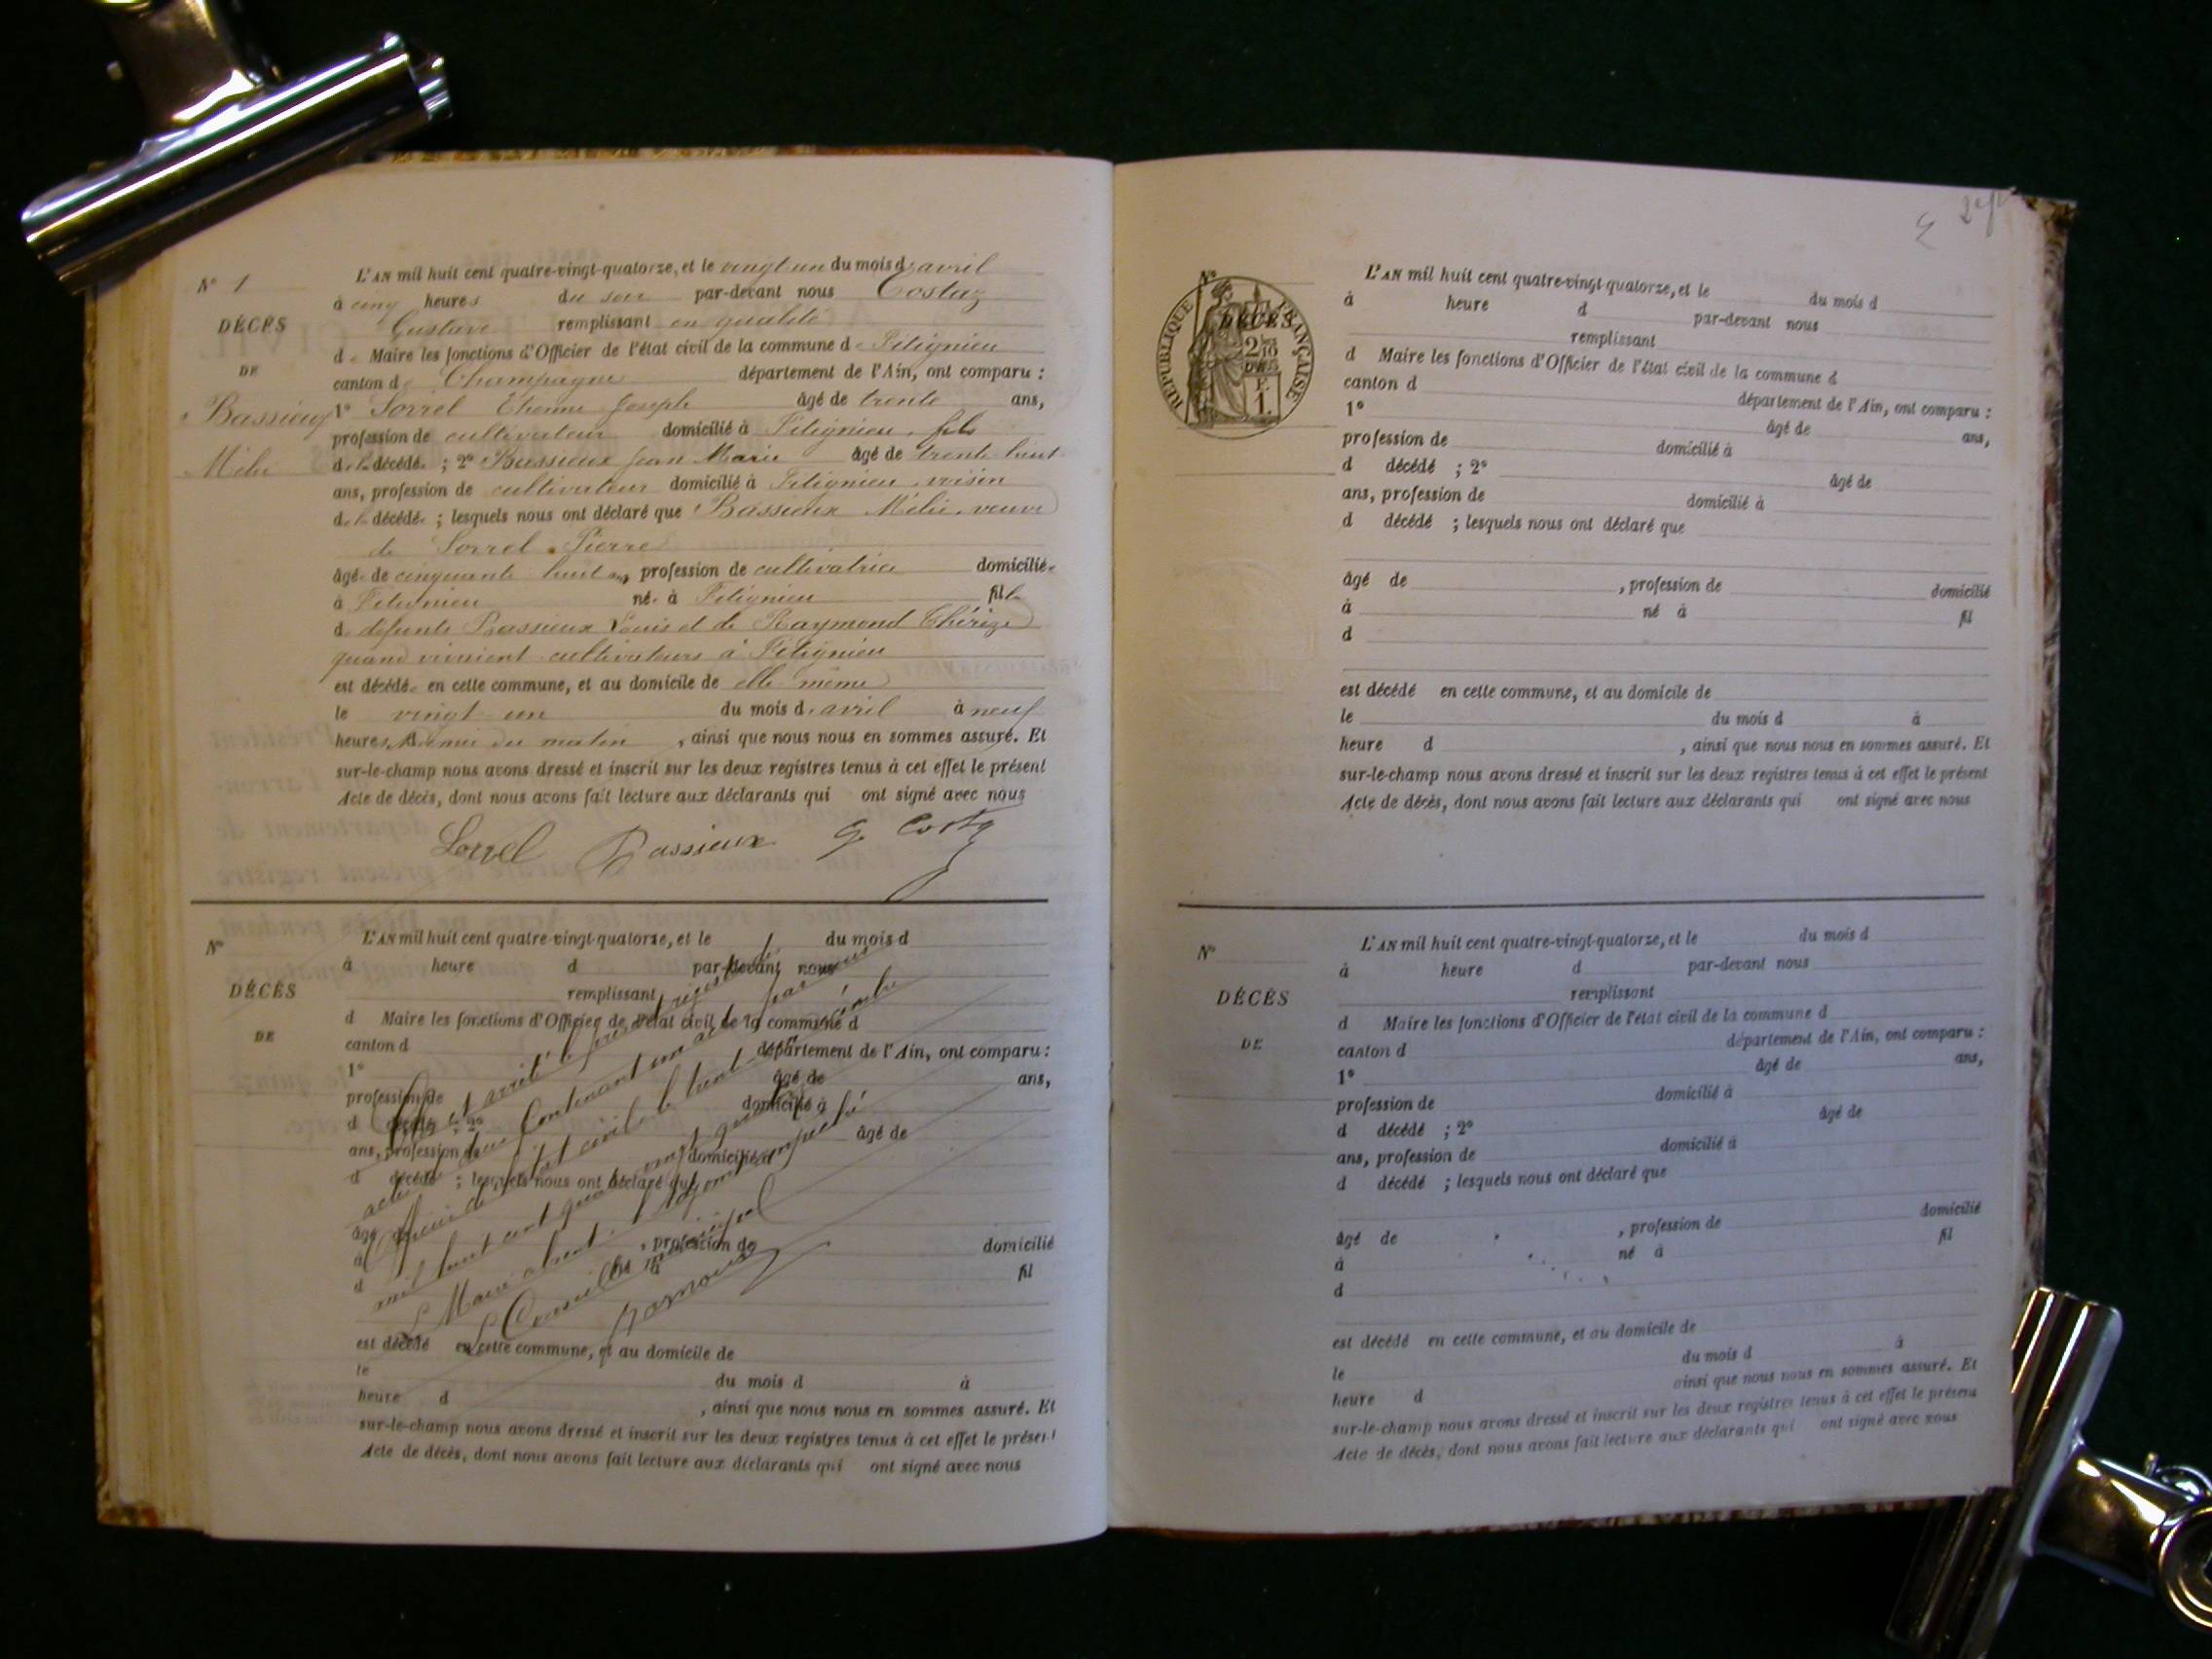 N° 1
DÉCÈS
DE
Bassieux
Mélie
L'AN mil huit cent quatre-vingt-quatorze, et le vingt un du mois d'avril
à cinq heures du soir par-devant nous Costaz
Gustave remplissant en qualité
de Maire les fonctions d'Officier de l'état civil de la commune de Fitignieu
canton de Champagne département de l'Ain, ont comparu :
1° Sorrel Etienne Joseph âgé de trente ans,
profession de cultivateur domicilié à Fitignieu, fils
de la décédée ; 2° Bassieux Jean Marie âgé de trente huit
ans, profession de cultivateur domicilié à Fitignieu, voisin
de la décédée ; lesquels nous ont déclaré que Bassieux Mélie, veuve
de Sorrel Pierre
âgée de cinquante huit ans, profession de cultivatrice domiciliée
à Fitignieu née à Fitignieu fille
de défunts Bassieux Louis et de Raymond Thérèze
quand vivaient cultivateurs à Fitignieu
est décédée en cette commune, et au domicile de elle-même
le vingt un du mois d'avril à neuf
heures & demie du matin, ainsi que nous nous en sommes assuré. Et
sur-le-champ nous avons dressé et inscrit sur les deux registres tenus à cet effet le présent
Acte de décès, dont nous avons fait lecture aux déclarants qui ont signé avec nous
Sorrel Bassieux G. Costaz
N°
DÉCÈS
DE
L'AN mil huit cent quatre-vingt-quatorze, et le du mois d
à heure d par-devant nous
remplissant
d Maire les fonctions d'Officier de l'état civil de la commune d
canton d département de l'Ain, ont comparu :
1° âgé de ans,
profession de domicilié à
d décédé ; 2° âgé de
ans, profession de domicilié à
d décédé ; lesquels nous ont déclaré que
âgé de , profession de domicilié
à né à fil
d
est décédé en cette commune, et au domicile de
le du mois d à
heure d , ainsi que nous nous en sommes assuré. Et
sur-le-champ nous avons dressé et inscrit sur les deux registres tenus à cet effet le présent
Acte de décès, dont nous avons fait lecture aux déclarants qui ont signé avec nous
Clos et arrêté le présent registre
contenant un acte par nous
officier de l'état civil le trente
mil huit cent quatre vingt quatorze
Le Maire absent et l'adjoint empêché
Le Conseiller municipal
N°
RÉPUBLIQUE FRANÇAISE
DÉCÈS
L'AN mil huit cent quatre-vingt-quatorze, et le du mois d
à heure d par-devant nous
remplissant
d Maire les fonctions d'Officier de l'état civil de la commune d
canton d département de l'Ain, ont comparu :
1° âgé de ans,
profession de domicilié à
d décédé ; 2° âgé de
ans, profession de domicilié à
d décédé ; lesquels nous ont déclaré que
âgé de , profession de domicilié
à né à fil
d
est décédé en cette commune, et au domicile de
le du mois d à
heure d , ainsi que nous nous en sommes assuré. Et
sur-le-champ nous avons dressé et inscrit sur les deux registres tenus à cet effet le présent
Acte de décès, dont nous avons fait lecture aux déclarants qui ont signé avec nous
N°
DÉCÈS
DE
L'AN mil huit cent quatre-vingt-quatorze, et le du mois d
à heure d par-devant nous
remplissant
d Maire les fonctions d'Officier de l'état civil de la commune d
canton d département de l'Ain, ont comparu :
1° âgé de ans,
profession de domicilié à
d décédé ; 2° âgé de
ans, profession de domicilié à
d décédé ; lesquels nous ont déclaré que
âgé de , profession de domicilié
à né à fil
d
est décédé en cette commune, et au domicile de
le du mois d à
heure d ainsi que nous nous en sommes assuré. Et
sur-le-champ nous avons dressé et inscrit sur les deux registres tenus à cet effet le présent
Acte de décès, dont nous avons fait lecture aux déclarants qui ont signé avec nous